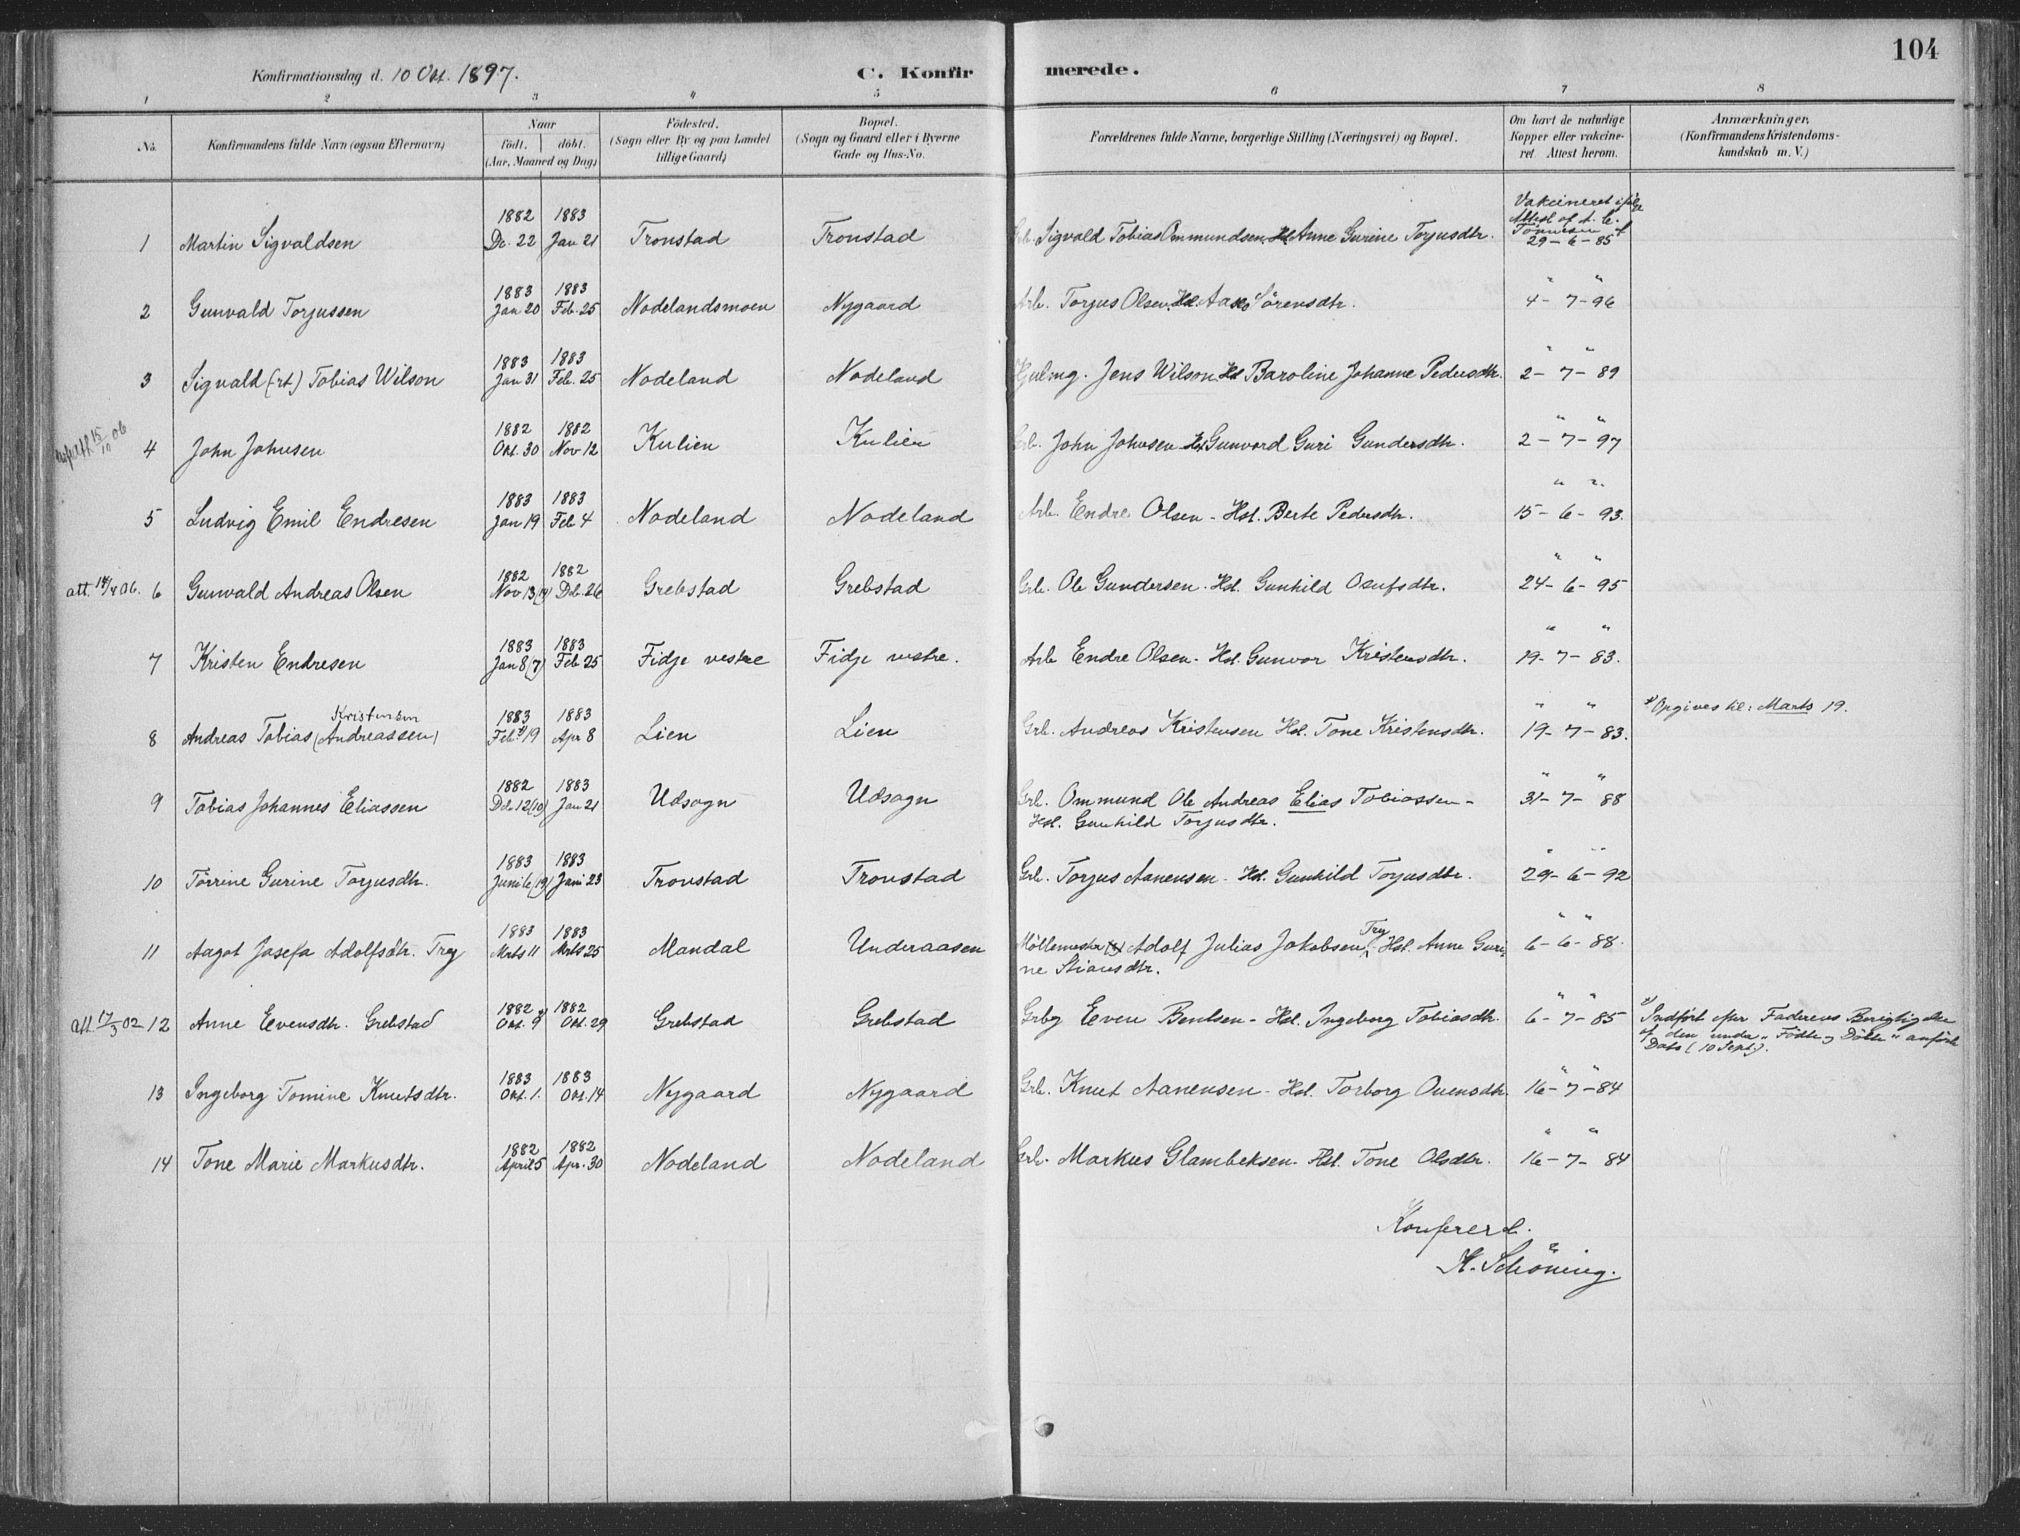 104
Konfirmationsdag d. 10 Okt. 1897.
C. Konfirmerede.
1 2 3 4 5 6 7 8
No. Konfirmandens fulde Navn (ogsaa Efternavn) Naar født. døbt. (Aar, Maaned og Dag) Fødested. (Sogn eller By og paa Landet tillige Gaard) Bopæl. (Sogn og Gaard eller i Byerne Gade og Hus-No. Forældrenes fulde Navne, borgerlige Stilling (Næringsvei) og Bopæl. Om havt de naturlige Kopper eller vakcineret. Attest herom. Anmærkninger. (Konfirmandens Kristendomskundskab m. V.)
1 Martin Sigvaldsen 1882 De. 22 1883 Jan 21 Tronstad Tronstad Sigvald Tobias Ommundsen Hst Anne Gurine Torjusdtr. Vakcineret Attest af 29-6-85
2 Gunvald Torjussen 1883 Jan 20 1883 Feb. 25 Nodelandsmoen Nygaard Arb. Torjus Olsen. Hst. Sörensdtr. " " 4-7-96
3 Sigvald (-rt) Tobias Wilson 1883 Jan 31 1883 Feb. 25 Nodeland Nodeland Hjulmg. Jens Wilson Hst Baroline Johanne Pedersdtr. " " 2-7-89
15/10 06 4 John Johnsen 1882 Okt. 30 1882 Nov 12 Kulien Kulien Grb. John Johnsen Hst Gunvord Guri Gundersdtr. " " 2-7-97
5 Ludvig Emil Endresen 1883 Jan 19 1883 Feb 4 Nodeland Nodeland Arb. Endre Olsen - Hst. Berte Pedersdtr. " " 15-6-93.
att. 14/4 06. 6 Gunvald Andreas Olsen 1882 Nov 13 (14) 1882 Db. 26 Grebstad Grebstad Grb. Ole Gundersen. Hst. Gunhild Osufsdtr. " " 24-6-95
7 Kristen Endresen 1883 Jan 8 (7) 1883 Feb 25 Fidje vestre Fidje vestre. Arb Endre Olsen - Hst. Gunvor Kristensdtr. " " 19-7-83.
8 Andreas Tobias (Andreassen) Kristensen 1883 Feb. 19 1883 Apr 8 Lien Lien Grb. Andreas Kristensen Hst. Tone Kristensdtr. " " 19-7-83. Opgives til: Marts 19.
9 Tobias Johannes Eliassen 1882 Db 12 (10) 1883 Jan 21 Udsogn Udsogn Grb. Ommund Ole Andreas Elias Tobiassen - " " 31-7-88
Hst. Gunhild Torjusdtr.
10 Törrine Gurine Torjusdtr. 1883 Juni 6 (19) 1883 Juni 23 Tronstad Tronstad Grb. Torjus Aanensen - Hst. Gunhild Torjusdtr. " " 29-6-92
11 Aagot Josefa Adolfsdtr. Trey 1883 Mrts 11 1883 Mrts 25 Mandal Underaasen Möllemester Adolf Julius Jakobsen Trey Hst. Anne Guri- " " 6-6-88.
ne Stiansdtr.
att. 17/3 02 12 Anne Evensdtr. Grebstad 1882 Okt. 9 1882 Okt. 29 Grebstad Grebstad Grbg Even Bentsen - Hst. Ingeborg Tobiasdtr. " " 6-7-85 Indfört efter Faderens Berigtigelse
af den under "Födte og Döbte" anförte
Dato (10 Sept).
13 Ingeborg Tomine Knutsdtr. 1883 Okt. 1. 1883 Okt. 14 Nygaard Nygaard Grb. Knut Aanensen - Hst. Torborg Ouensdtr. " " 16-7-84
14 Tone Marie Markusdtr. 1882 April 5 1882 Apr. 30 Nodeland Nodeland Grb. Markus Glambeksen - Hst. Tone Olsdtr. " " 16-7-84
Konfereret.
H. Schöning.